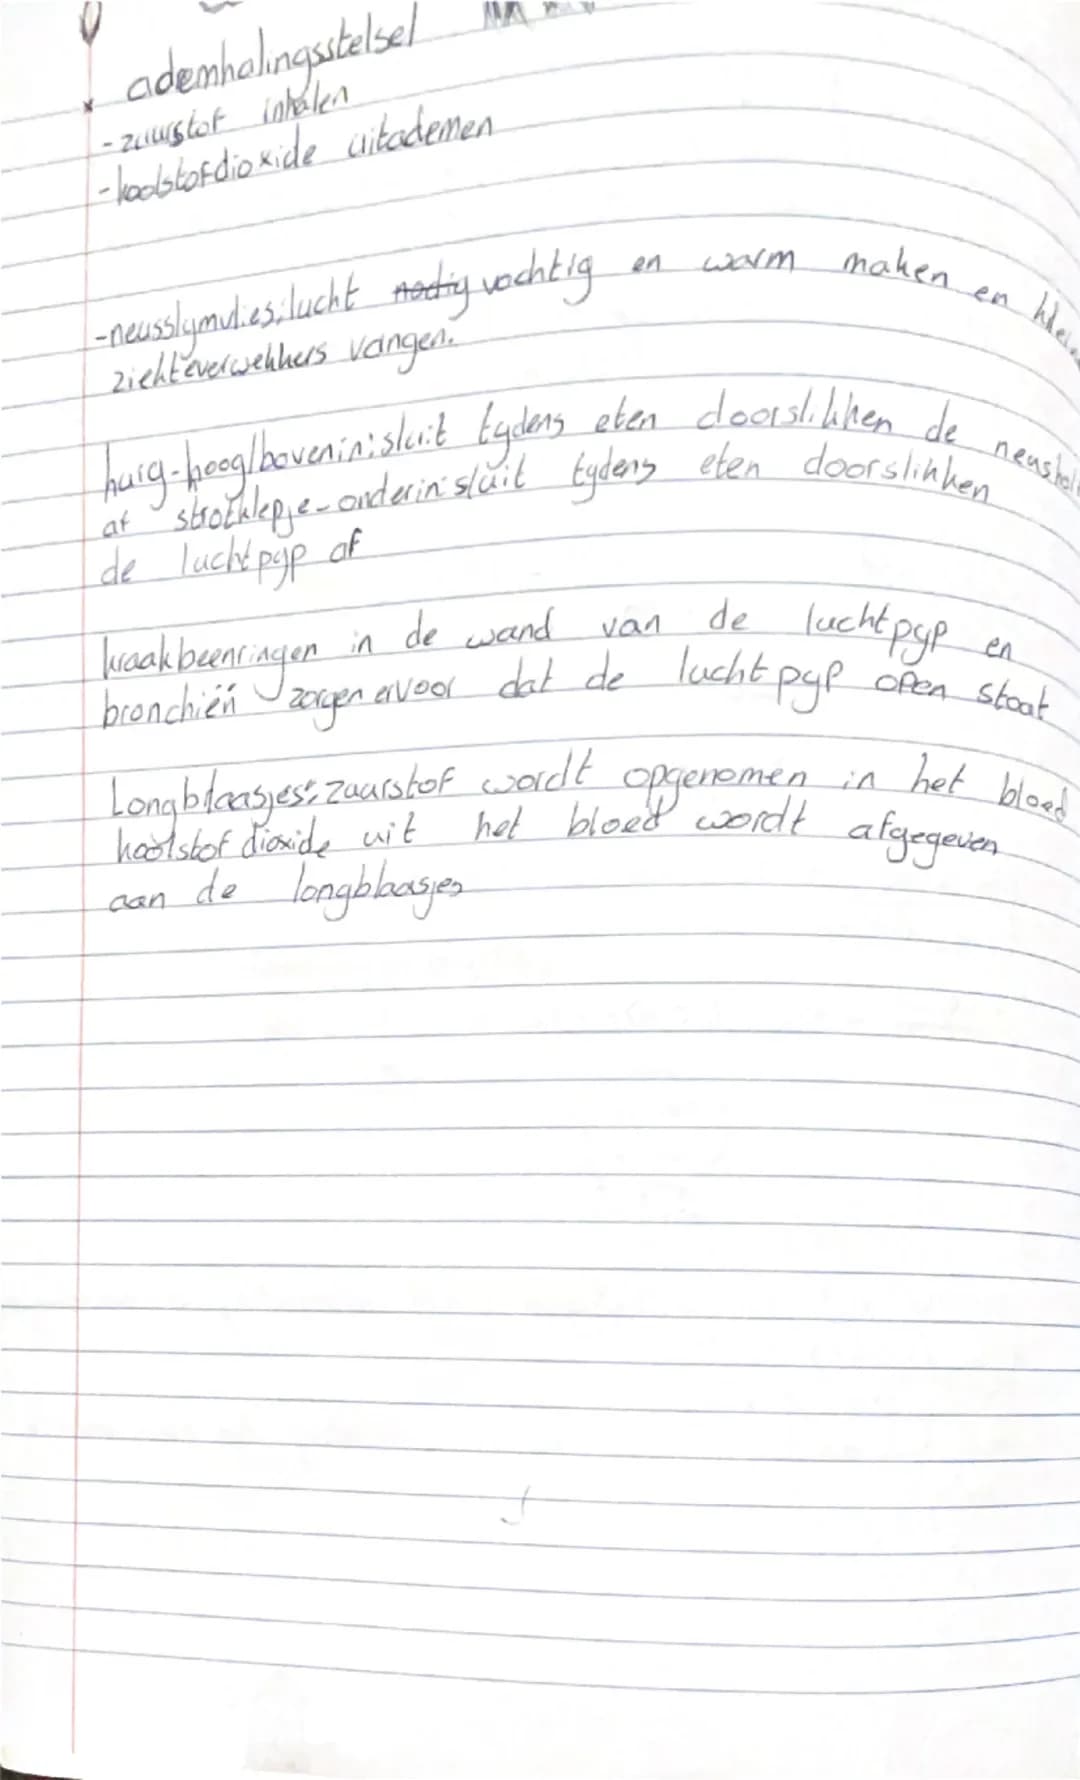 ademhalingsstelsel
- zuurstof inhalen
- koolstofdioxide uitademen
- neusslymvlies: lucht nodig vochtig en warm maken en
ziekteverwekkers vangen.
huig - hoog/bovenin: sluit tydens eten doorslikken de neushol
af strotklepje - onderin: sluit tydens eten doorslikken
de luchtpyp af
kraakbeenringen in de wand van de luchtpyp en
bronchiën zorgen ervoor dat de luchtpyp open staat
Longblaasjes: zuurstof wordt opgenomen in het bloed
koolstofdioxide uit het bloed wordt afgegeven
aan de longblaasjes